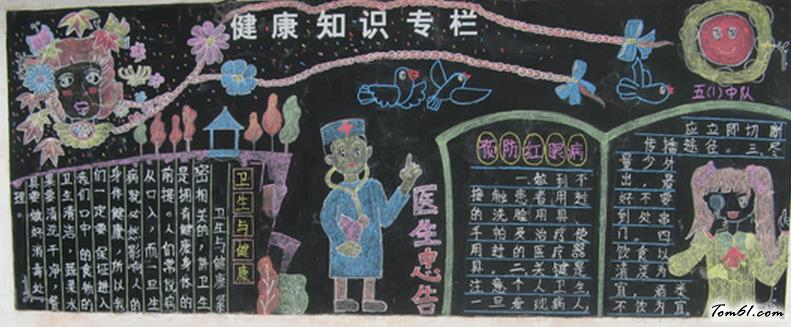 健康知识专栏
五(1)中队
卫生与健康
卫生与健康紧
密相关的,讲卫生
是拥有健康身体的
前提。人们常说病
从口入,而一旦生
病就必然影响人的
身体健康,所以我
们一定要保证进入
我们口中的食物的
卫生清洁,蔬果水
果要清洗干净,餐
具要做好消毒处
理。
医生忠告
预防红眼病
一做到不
接触患者用
的洗脸用具
手帕及治疗使
用过的医疗器
具。二、关键是
注意个人卫生,
一旦发现病人,
应立即切断
传播途径。三、尽
Tom61.com